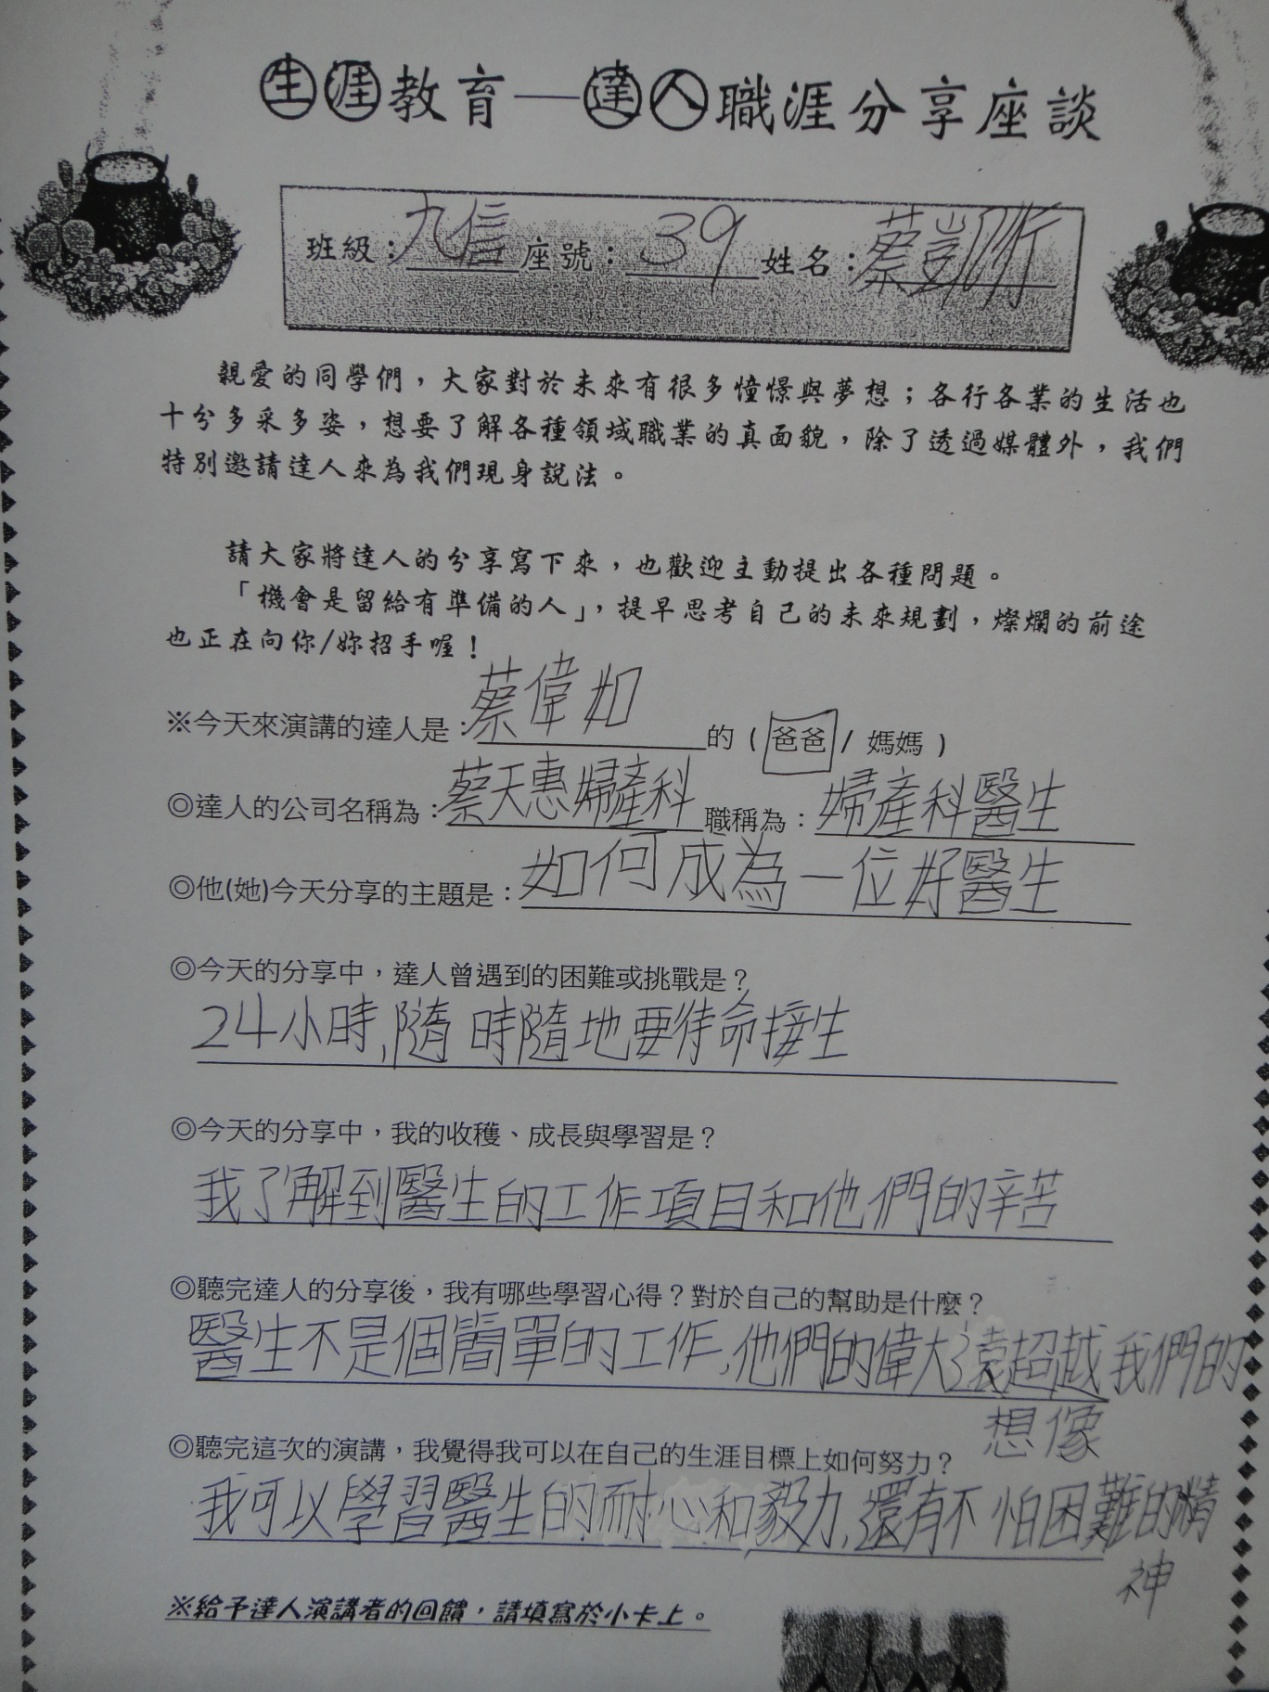 生涯教育—達人職涯分享座談
班級：九信 座號：39 姓名：蔡凱衍
親愛的同學們，大家對於未來有很多憧憬與夢想；各行各業的生活也
十分多采多姿，想要了解各種領域職業的真面貌，除了透過媒體外，我們
特別邀請達人來為我們現身說法。
請大家將達人的分享寫下來，也歡迎主動提出各種問題。
「機會是留給有準備的人」，提早思考自己的未來規劃，燦爛的前途
也正在向你/妳招手喔！
※今天來演講的達人是：蔡偉如 的（爸爸 / 媽媽）
◎達人的公司名稱為：蔡天惠婦產科 職稱為：婦產科醫生
◎他(她)今天分享的主題是：如何成為一位好醫生
◎今天的分享中，達人曾遇到的困難或挑戰是？
24小時,隨時隨地要待命接生
◎今天的分享中，我的收穫、成長與學習是？
我了解到醫生的工作項目和他們的辛苦
◎聽完達人的分享後，我有哪些學習心得？對於自己的幫助是什麼？
醫生不是個簡單的工作,他們的偉大遠超越我們的
想像
◎聽完這次的演講，我覺得我可以在自己的生涯目標上如何努力？
我可以學習醫生的耐心和毅力,還有不怕困難的精
神
※給予達人演講者的回饋，請填寫於小卡上。